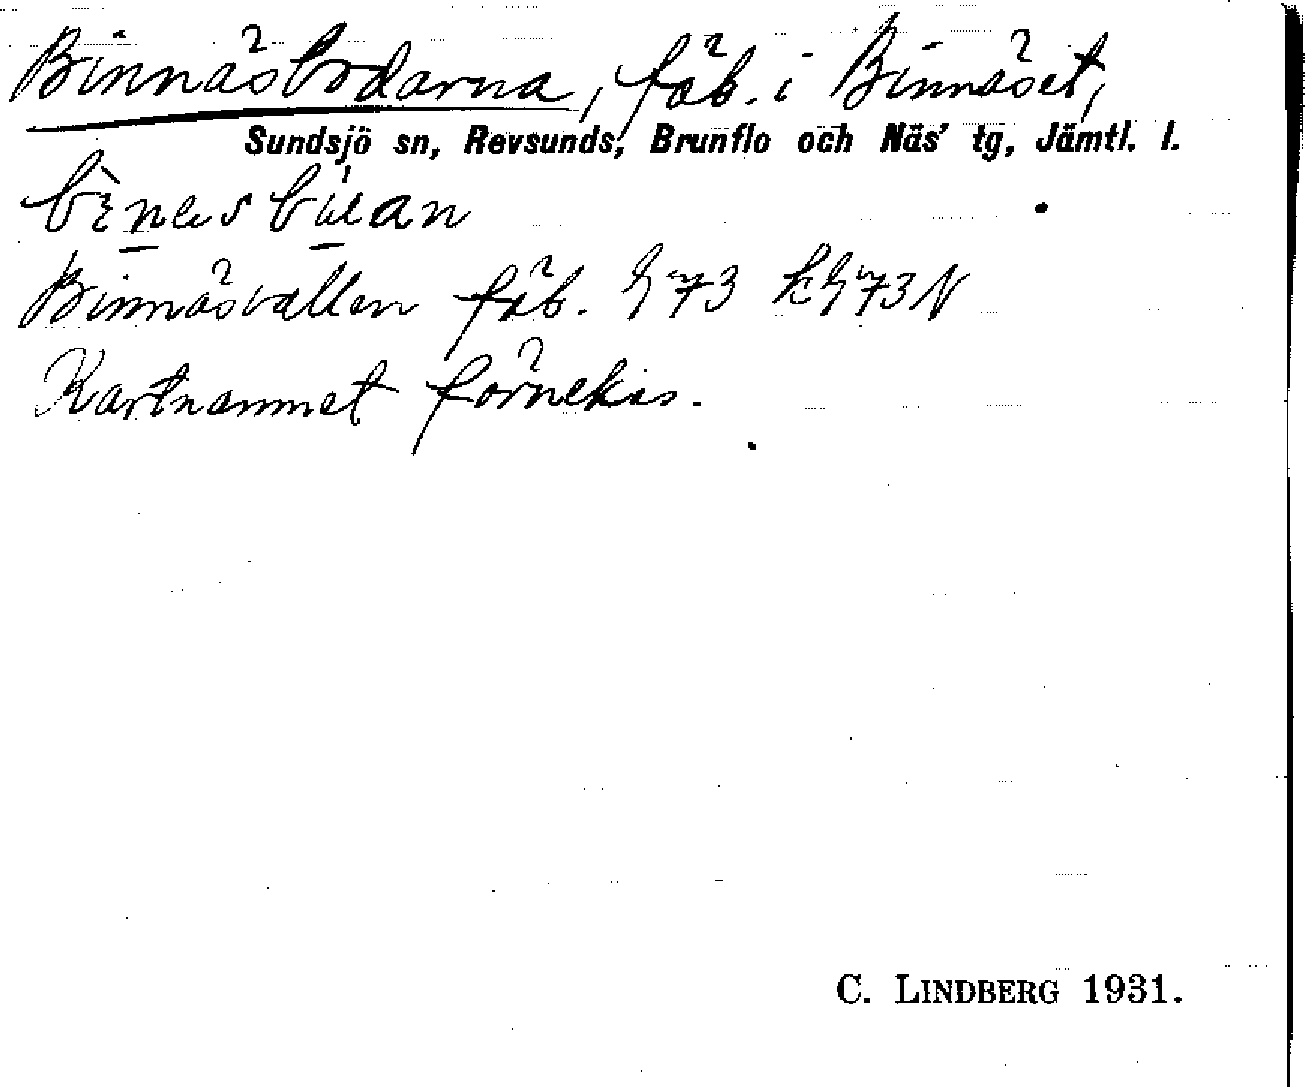 Binnäsbodarna, fäb. i Binnäset,
Sundsjö sn, Revsunds, Brunflo och Näs' tg, Jämtl. l.
Binnäsvallen fäb. 73 73 N
Kartnamnet förnekas.
C. LINDBERG 1931.